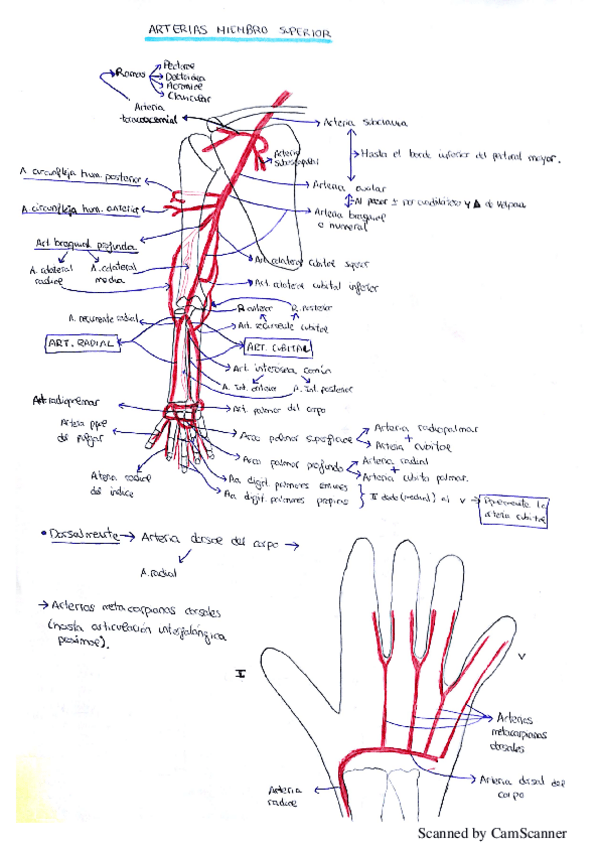 ARTERIAS MIEMBRO SUPERIOR
Ramas
Pectoral
Deltoidea
Acromial
Clavicular
Arteria
toracoacromial
Arteria subclavia
Hasta el borde inferior del pectoral mayor.
Arteria
subescapular
Arteria axilar
Arteria braquial
o humeral
A. circunfleja hum. posterior
A. circunfleja hum. anterior
Art. braquial profunda
A. colateral
radial
A. colateral
media
Art. colateral cubital superior
Art. colateral cubital inferior
R. anterior
R. posterior
A. recurrente radial
Art. recurrente cubital
ART. RADIAL
ART. CUBITAL
Art. interosea común
A. Int. anterior
A. Int. posterior
Art. radiopalmar
Art. palmar del carpo
Arteria ppal
del pulgar
Arco palmar superficial
Arteria radiopalmar
+
Arteria cubital
Arco palmar profundo
Arteria radial
+
Arteria cubito palmar.
Arteria radial
del índice
Aa. digit. palmares comunes
Aa. digit. palmares propias
II dedo (medial) al V
arteria cubital
• Dorsalmente → Arteria dorsal del carpo →
A. radial
→ Arterias metacarpianas dorsales
(hasta articulación interfalángica
proximal).
I
V
Arterias
metacarpianas
dorsales
Arteria dorsal del
carpo
Arteria
radial
Scanned by CamScanner